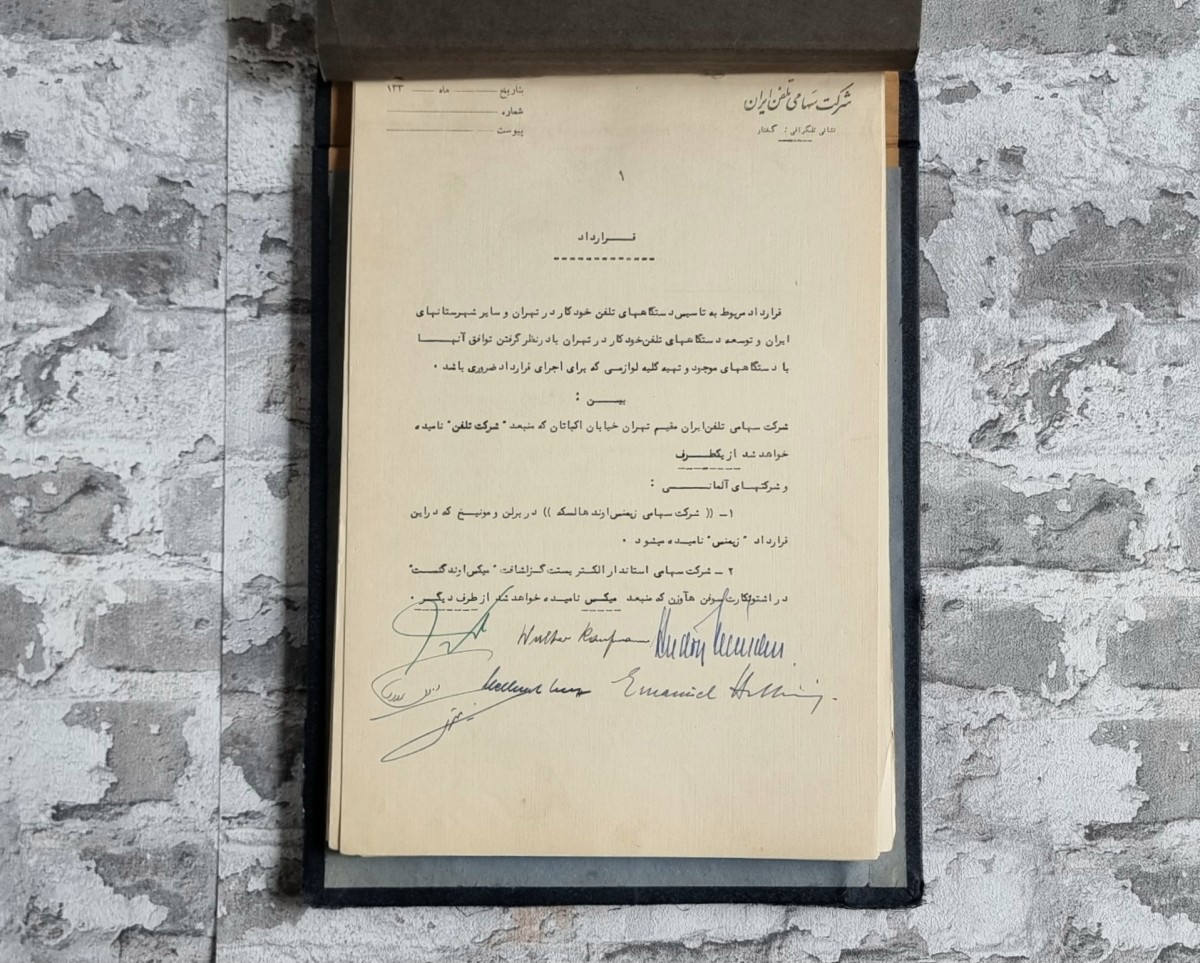 شرکت سهامی تلفن ایران
نشانی تلگرافی : گفتار
بتاریخ ماه ۱۳۳
شماره
پیوست
۱
قرارداد
قرارداد مربوط به تاسیس دستگاههای تلفن خودکار در تهران و سایر شهرستانهای
ایران و توسعه دستگاههای تلفن خودکار در تهران با در نظر گرفتن توافق آنها
با دستگاههای موجود و تهیه کلیه لوازمی که برای اجرای قرارداد ضروری باشد .
بین :
شرکت سهامی تلفن ایران مقیم تهران خیابان اکباتان که منبعد " شرکت تلفن " نامیده
خواهد شد از یکطرف
و شرکتهای آلمانی :
۱ـ (( شرکت سهامی زیمنس اوند هالسکه )) در برلن و مونیخ که در این
قرارداد " زیمنس " نامیده میشود .
۲ ـ شرکت سهامی استاندارد الکتریستت گزلشافت " میکس اوند گنست "
در اشتوتکارت سوفن هاوزن که منبعد میکس نامیده خواهد شد از طرف دیگر .
Emanuel